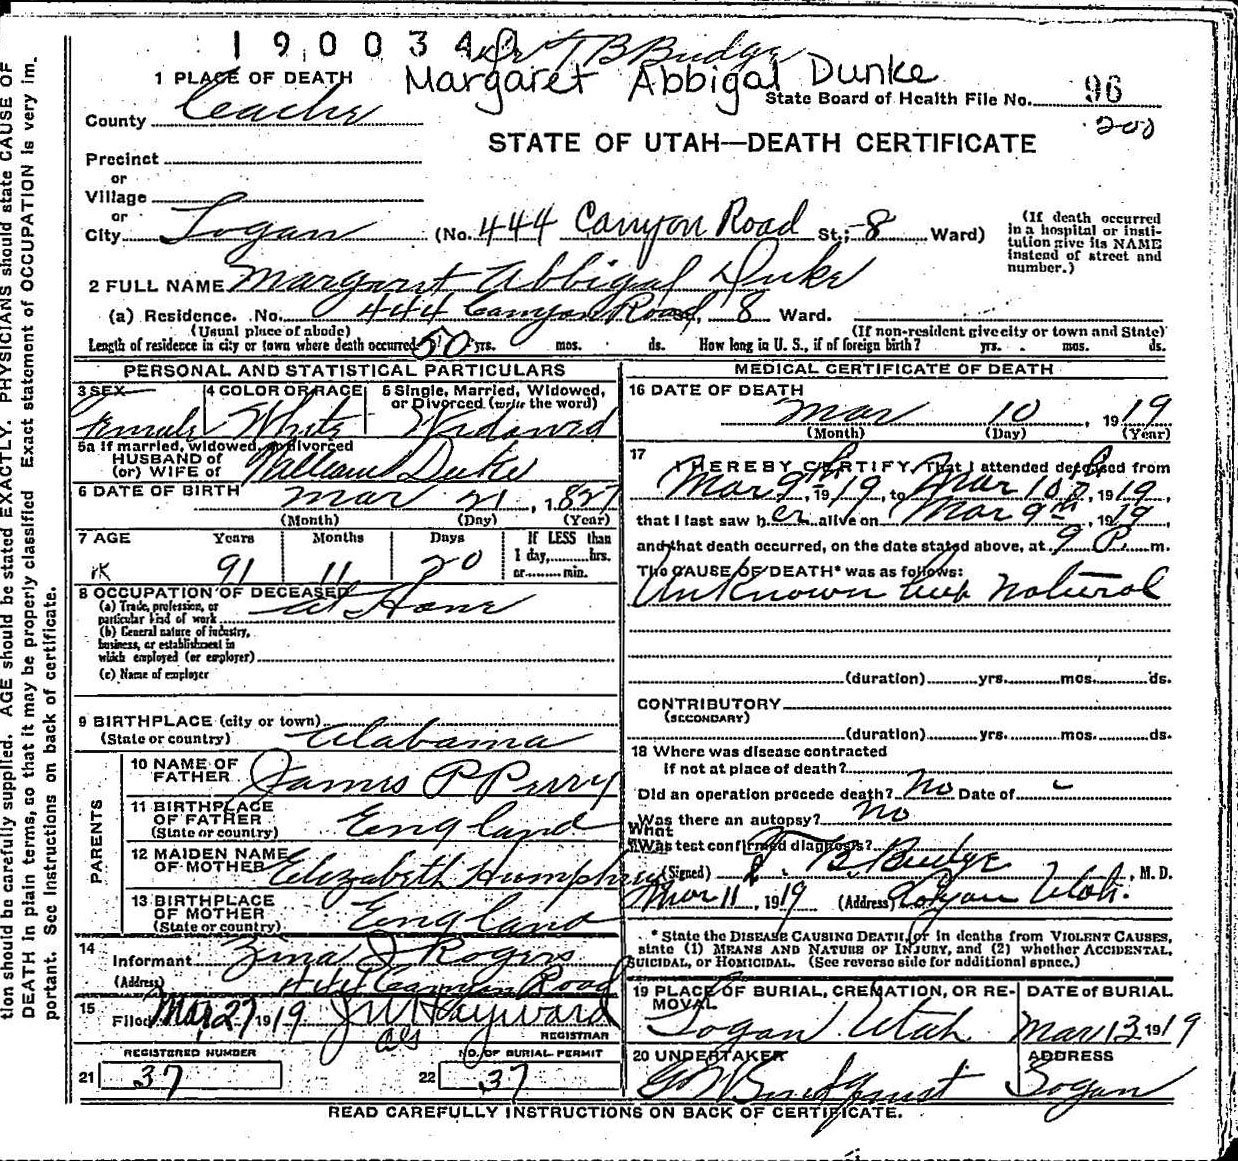 1900340
Dr T B Budge
1 PLACE OF DEATH Margaret Abbigal Dunke
State Board of Health File No. 96
200
County Cache
STATE OF UTAH—DEATH CERTIFICATE
Precinct
or
Village
or
City Logan (No. 444 Canyon Road St.; 8 Ward)
(If death occurred in a hospital or institution give its NAME instead of street and number.)
2 FULL NAME Margaret Abbigal Duke
(a) Residence. No. 444 Canyon Road St., 8 Ward.
(Usual place of abode) (If non-resident give city or town and State)
Length of residence in city or town where death occurred 50 yrs. mos. ds. How long in U. S., if of foreign birth? yrs. mos. ds.
PERSONAL AND STATISTICAL PARTICULARS
3 SEX Female
4 COLOR OR RACE White
5 Single, Married, Widowed, or Divorced (write the word) Widowed
5a If married, widowed, or divorced
HUSBAND of
(or) WIFE of William Duke
6 DATE OF BIRTH Mar 21, 1827
(Month) (Day) (Year)
7 AGE Years Months Days If LESS than
1 day, hrs.
or min.
91 11 20
8 OCCUPATION OF DECEASED
(a) Trade, profession, or
particular kind of work At Home
(b) General nature of industry,
business, or establishment in
which employed (or employer)
(c) Name of employer
9 BIRTHPLACE (city or town)
(State or country) Alabama
PARENTS
10 NAME OF
FATHER James P Perry
11 BIRTHPLACE
OF FATHER
(State or country) England
12 MAIDEN NAME
OF MOTHER Elizabeth Humphrey
13 BIRTHPLACE
OF MOTHER
(State or country) England
14
Informant Zina J Rogers
(Address) 444 Canyon Road
15
Filed Mar 27 1919 J W Hayward
REGISTRAR
REGISTERED NUMBER NO. OF BURIAL PERMIT
21 37 22 37
MEDICAL CERTIFICATE OF DEATH
16 DATE OF DEATH
Mar 10, 1919
(Month) (Day) (Year)
17 I HEREBY CERTIFY, That I attended deceased from
Mar 9th, 1919, to Mar 10th, 1919,
that I last saw her alive on Mar 9th, 1919,
and that death occurred, on the date stated above, at 9 P m.
The CAUSE OF DEATH* was as follows:
Unknown but natural
(duration) yrs. mos. ds.
CONTRIBUTORY
(SECONDARY)
(duration) yrs. mos. ds.
18 Where was disease contracted
if not at place of death?
Did an operation precede death? No Date of
Was there an autopsy? No
What
Was test confirmed diagnosis?
(Signed) T B. Budge, M. D.
Mar 11, 1919 (Address) Logan Utah.
* State the DISEASE CAUSING DEATH, or in deaths from VIOLENT CAUSES,
state (1) MEANS AND NATURE OF INJURY, and (2) whether ACCIDENTAL,
SUICIDAL, or HOMICIDAL. (See reverse side for additional space.)
19 PLACE OF BURIAL, CREMATION, OR REMOVAL DATE of BURIAL
Logan Utah Mar 13 1919
20 UNDERTAKER ADDRESS
Logan
READ CAREFULLY INSTRUCTIONS ON BACK OF CERTIFICATE.
tion should be carefully supplied. AGE should be stated EXACTLY. PHYSICIANS should state CAUSE OF
DEATH in plain terms, so that it may be properly classified. Exact statement of OCCUPATION is very im-
portant. See Instructions on back of certificate.